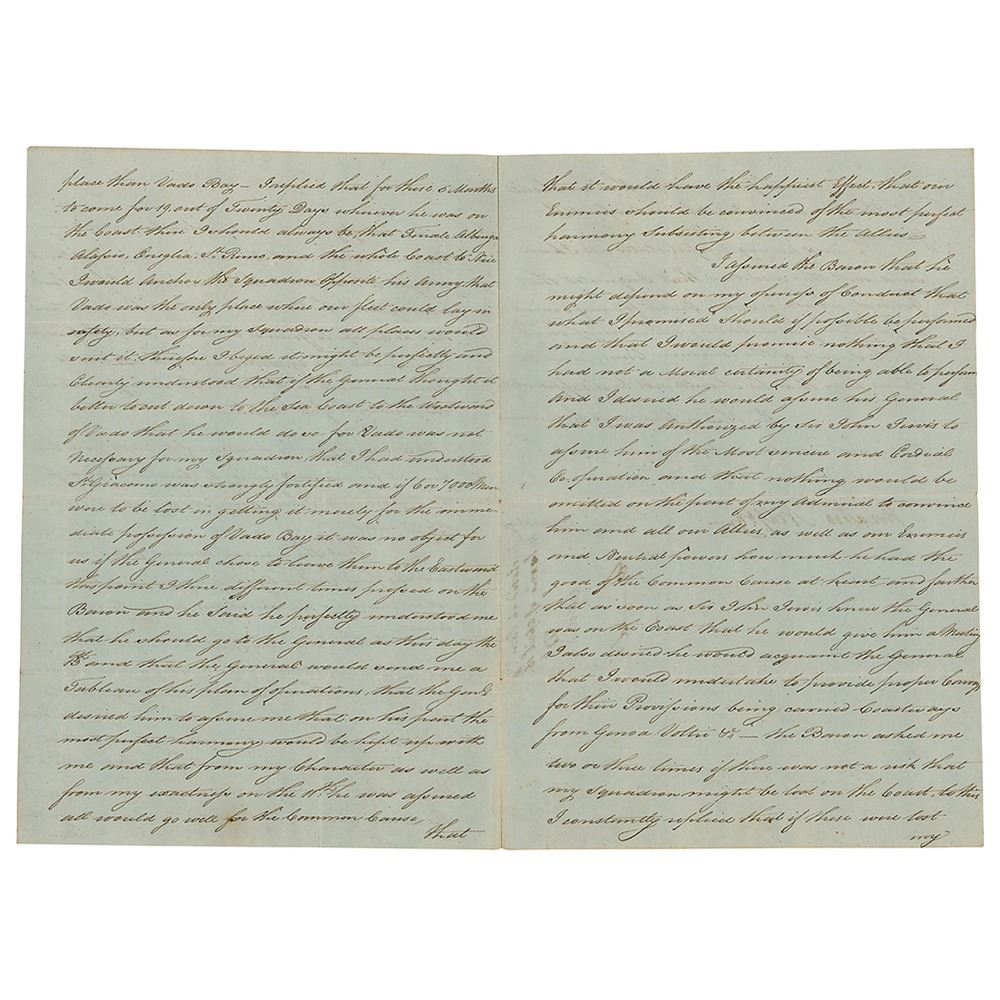 place than Vado Bay – I replied that for these 5 Months
to come for 19 out of Twenty Days whenever he was on
the Coast there I should always be, that Finale Albenga
Alassio, Oneglia, St. Remo, and the whole Coast to Nice
I would Anchor the Squadron Opposite his Army, that
Vado was the only place where our fleet could lay in
safety, but as for my Squadron all places would
suit it. therefore I beged it might be perfectly and
Clearly understood that if the General thought it
better to cut down to the Sea Coast to the Westward
of Vado that he would do so for Vado was not
Necessary for my Squadron, that I had understood
St. Giacomo was strongly fortified and if 6 or 7000 Men
were to be lost in getting it merely for the imme
diate possession of Vado Bay, it was no object for
us if the General chose to leave them to the Eastward
this point I three different times pressed on the
Baron and he Said he perfectly understood me
that he should go to the General as this day the
and that the General would send me a
Tableau of his plan of operations, that the Genl.
desired him to assure me that on his part the
most perfect harmony would be kept up with
me and that from my Character as well as
from my exactness on the he was assured
all would go well for the Common Cause,
that
that it would have the happiest Effect, that our
Enemies should be convinced of the most perfect
harmony Subsisting between the Allies –
I assured the Baron that he
might depend on my of Conduct that
what I promised Should if possible be performed
and that I would promise nothing that I
had not a Moral certainty of being able to perform
And I desired he would assure his General
that I was Authorized by Sir John Jervis to
assure him of the Most sincere and Cordial
Co-operation and that nothing would be
omitted on the part of my Admiral to convince
him and all our Allies, as well as our Enemies
and Neutral powers how much he had the
good of the Common Cause at heart and farther
that as soon as Sir John Jervis knew the General
was on the Coast that he would give him a Meeting
I also desired he would acquaint the General
that I would undertake to provide proper Convoy
for their Provisions being carried Coastways
from Genoa Voltri &c – the Baron asked me
two or three times if there was not a risk that
my Squadron might be lost on the Coast, to this
I constantly replied that if these were lost
my